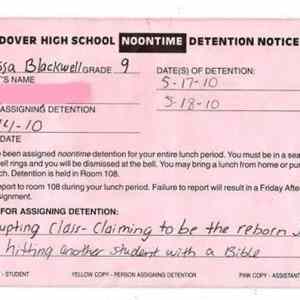 DOVER HIGH SCHOOL NOONTIME DETENTION NOTICE
ssa Blackwell GRADE 9 DATE(S) OF DETENTION:
T'S NAME 5-17-10
5-18-10
ASSIGNING DETENTION
4-10
DATE
been assigned noontime detention for your entire lunch period. You must be in a sea
ell rings and you will be dismissed at the bell. You may bring a lunch from home or pu
ch. Detention is held in Room 108.
eport to room 108 during your lunch period. Failure to report will result in a Friday After
signment.
FOR ASSIGNING DETENTION:
upting class- claiming to be the reborn
hitting another student with a Bible
- STUDENT YELLOW COPY - PERSON ASSIGNING DETENTION PINK COPY - ASSISTANT